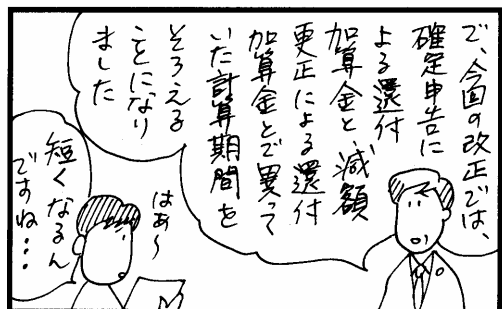 で、今回の改正では、
確定申告に
よる還付
加算金と減額
更正による還付
加算金とで異って
いた計算期間を
そろえる
ことになり
ました
はぁ〜
短くなるん
ですね・・・